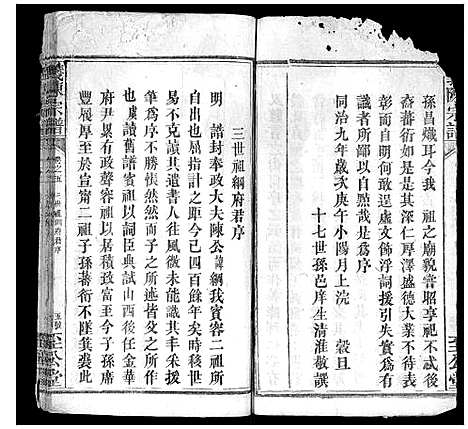 孫昌熾耳今我 祖之廟貌嘗昭享祀不忒後
裔蕃衍如斯是其深仁厚澤盛德大業不待表
彰而自明何敢逞虛文飾浮詞援引失實為有
識者所鄙以自黙哉是為序
同治九年歲次庚午小陽月上浣 穀旦
十七世孫邑庠生清淮敬譔
三世祖綱府君序
明 誥封奉政大夫陳公諱綱我賓容二祖所
自出也屈指計之距今已四百餘年矣時移世
易不克讀其遺書人往風微未能識其丰采援
筆為序不勝悵然然而當王子之所述皆父之所作
也虞讀舊譜賓祖以詞臣典試山西後任金華
府尹累有政聲容祖以居積致富至今子孫席
豐履厚至於宣甯二祖子孫蕃衍不墜箕裘此
陳宗譜
三世祖綱府君序